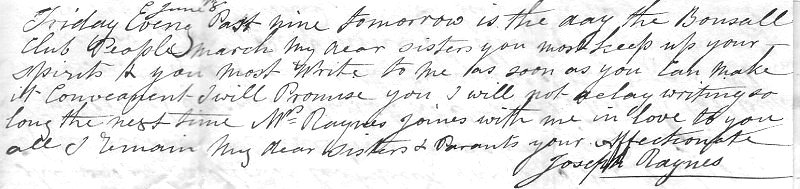 June 8
Friday Evene Past nine tomorrow is the day the Bonsall
Club People march My dear sisters you most keep up your
spirits & you most Write to me as soon as you Can make
it Conveanent I will Promise you I will not delay writing so
long the next time Mrs Raynes joines with me in love to you
all I remain My dear sisters & Parants your Affectionate
Joseph Raynes